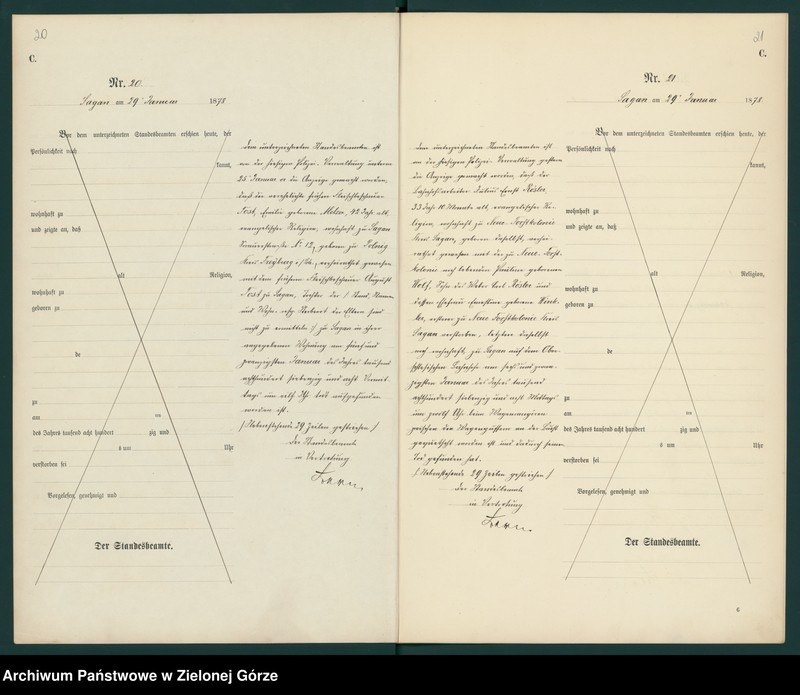 20
C.
Nr. 20.
Sagan am 29ten Januar 1878
Vor dem unterzeichneten Standesbeamten erschien heute, der
Persönlichkeit nach
kannt,
wohnhaft zu
und zeigte an, daß
alt Religion,
wohnhaft zu
geboren zu
de
zu
am ten
des Jahres tausend acht hundert zig und
s um Uhr
verstorben sei
Vorgelesen, genehmigt und
Der Standesbeamte.
dem unterzeichneten Standesbeamten ist
von der hiesigen Polizei-Verwaltung unterm
25 Januar die Anzeige gemacht worden,
daß die verehelichte frühere Fleischbeschauer
Tost, Emilie geborene Melzer, 42 Jahr alt,
evangelischer Religion, wohnhaft zu Sagan
No 12, geboren zu
Kreis Freiburg verheirathet gewesen
mit dem früheren Fleischbeschauer August
Tost zu Sagan, Tochter der
und Wohn- resp. Sterbeort der Eltern sind
nicht zu ermitteln / zu Sagan in ihrer
angegebenen Wohnung am fünf und
zwanzigsten Januar des Jahres tausend
achthundert siebenzig und acht Vormit-
tags um elf Uhr todt aufgefunden
worden ist.
/ Nebenstehende 29 Zeilen gestrichen /
Der Standesbeamte
in Vertretung
21
C.
Nr. 21
Sagan am 29ten Januar 1878.
Vor dem unterzeichneten Standesbeamten erschien heute, der
Persönlichkeit nach
kannt,
wohnhaft zu
und zeigte an, daß
alt Religion,
wohnhaft zu
geboren zu
de
zu
am ten
des Jahres tausend acht hundert zig und
s um Uhr
verstorben sei
Vorgelesen, genehmigt und
Der Standesbeamte.
dem unterzeichneten Standesbeamten ist
von der hiesigen Polizei-Verwaltung gestern
die Anzeige gemacht worden, daß der
Bahnhofsarbeiter Julius Ernst Rösler,
33 Jahr 10 Monate alt, evangelischer Re-
ligion, wohnhaft zu Neue Forstkolonie
Kreis Sagan, geboren daselbst, verhei-
rathet gewesen mit der zu Neue Forst-
kolonie noch lebenden Pauline geborenen
Wolf, Sohn des Weber Carl Rösler und
dessen Ehefrau Ernestine geborene Wink-
ler, ersterer zu Neue Forstkolonie Kreis
Sagan verstorben, letztere daselbst
noch wohnhaft, zu Sagan auf dem Ober-
schlesischen Bahnhofe am sechs und zwan-
zigsten Januar des Jahres tausend
achthundert siebenzig und acht Mittags
um zwölf Uhr beim Wagenrangiren
zwischen den Wagenpuffern an der Brust
gequetscht worden ist und dadurch seinen
Tod gefunden hat.
/ Nebenstehende 29 Zeilen gestrichen /
Der Standesbeamte
in Vertretung
6
Archiwum Państwowe w Zielonej Górze